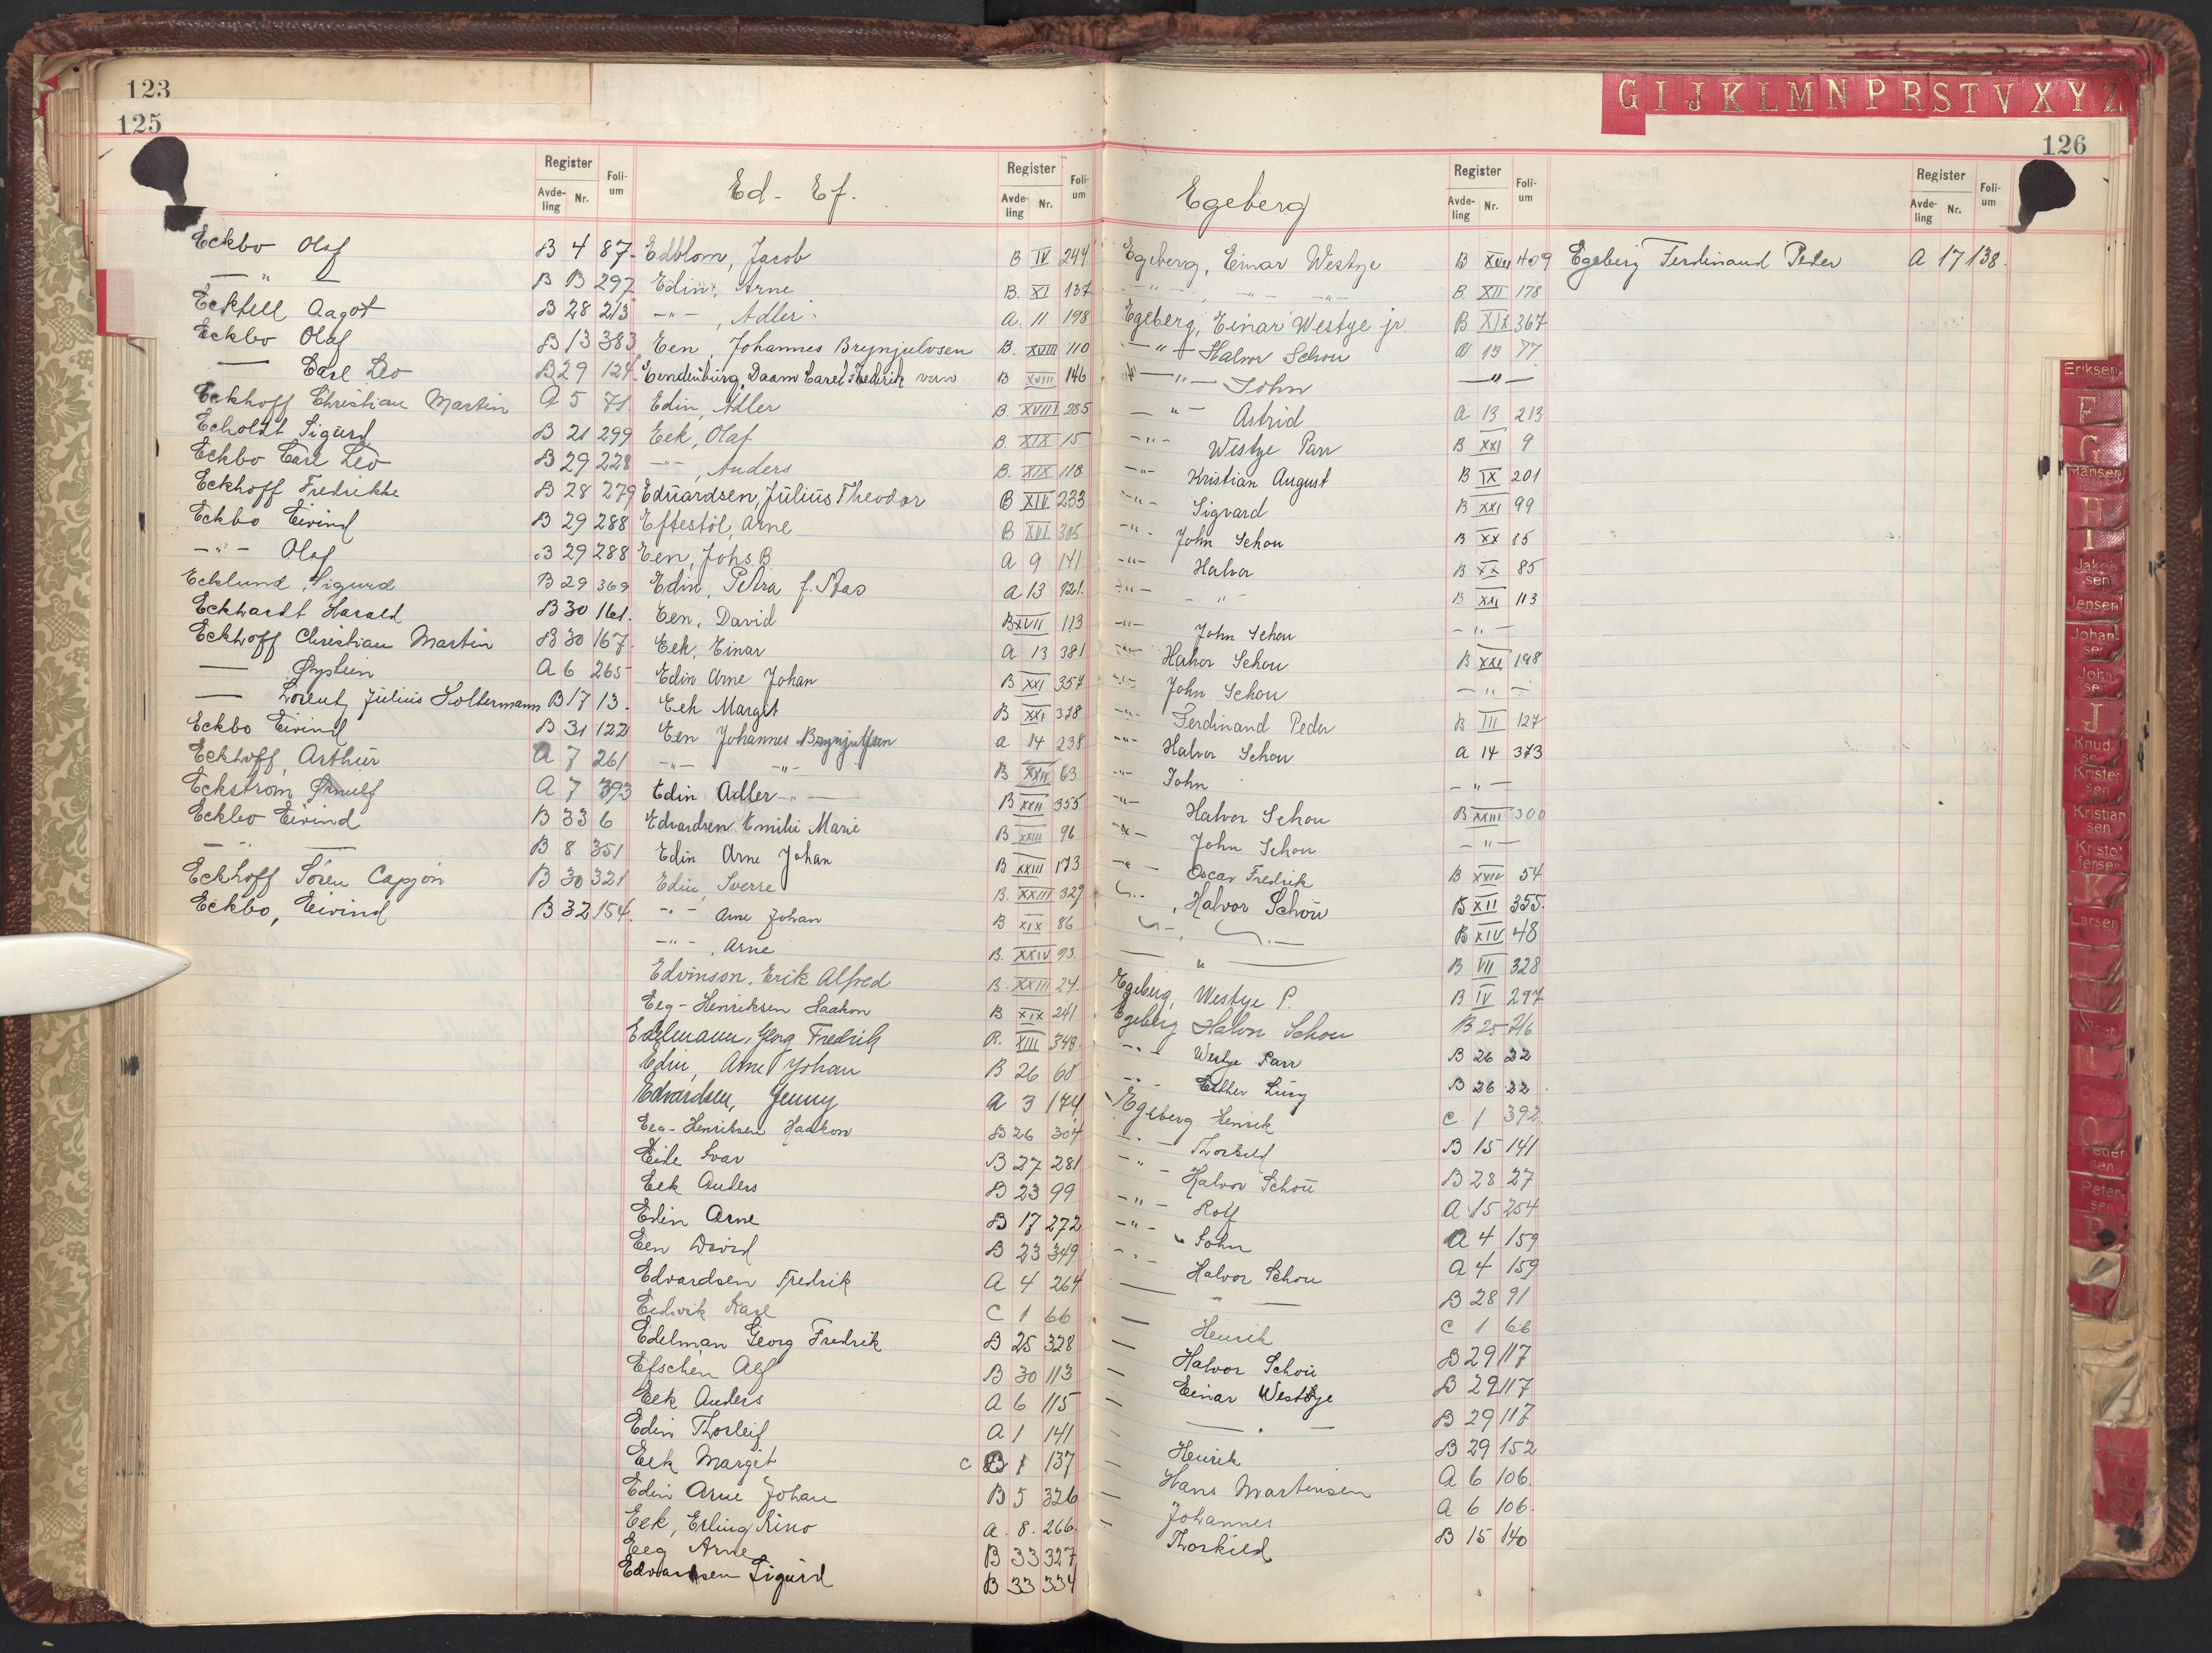 123
125
Register Avdeling Nr. Folium
Eckbo Olaf B 4 87
— " — B 13 297
Ecktell Aagot B 28 213
Eckbo Olaf B 13 383
— Carl Leo B 29 124
Eckhoff Christian Martin A 5 71
Echoldt Sigurd B 21 299
Eckbo Carl Leo B 29 228
Eckhoff Fredrikke B 28 279
Eckbo Eivind B 29 288
— " — Olaf B 29 288
Ecklund, Sigurd B 29 369
Eckhardt Harald B 30 161.
Eckhoff Christian Martin B 30 167.
— Øystein A 6 265
— Lorentz Julius Holtermann B 17 13.
Eckbo Eivind B 31 122
Eckhoff, Arthur A 7 261
Eckstrøm Ørnulf A 7 393
Eckbo Eivind B 33 6
— " — B 8 351
Eckhoff Sören Capjon B 30 321
Eckbo, Eivind B 32 154.
Ed - Ef.
Register Avdeling Nr. Folium
Edblom, Jacob B IV 244
Edin, Arne B. XI 137
— " — , Adler A. 11 198
Een, Johannes Brynjulvsen B. XVIII 110
Eendenburg, Daam Carel Frederik van B XVIII 146
Edin, Adler B. XVIII 285
Eek, Olaf B. XIX 15
— " —, Anders B. XIX 118
Eduardsen, Julius Theodor B XIV 233
Eftestöl, Arne B XVI 305
Een, Johs. B A 9 141
Edin, Petra f. Aas A 13 121.
Een, David B XVII 113
Eek, Einar A 13 381
Edin Arne Johan B XXI 357
Eek Margit B XXI 378
Een Johannes Brynjulfsen A 14 238
— " — — " — B XXII 63
Edin Adler — " — B XXII 355
Edvardsen Emilie Marie B XXIII 96
Edin Arne Johan B XXIII 173
Edin, Sverre B. XXIII 329
— " — Arne Johan B XIX 86
— " —, Arne B. XXIV 93.
Edvinson. Erik Alfred B. XXIII 24.
Eeg-Henriksen Haakon B XIX 241
Edelmann, Georg Fredrik B. XIII 348.
Edin, Arne Johan B 26 68
Edvardsen, Jenny A 3 174
Eeg-Henriksen Haakon B 26 304
Eide Ivar B 27 281
Eek Anders B 23 99
Edin Arne B 17 272
Een David B 23 349
Edvardsen Fredrik A 4 264
Eidsvik Karl C 1 66
Edelman Georg Fredrik B 25 328
Efschen Alf B 30 113
Eek Anders A 6 115
Edin Thorleif A 1 141
Eek Margit C 1 137
Edin Arne Johan B 5 326
Eek, Erling Rino A. 8. 266.
Eeg Arne B 33 327
Edvardsen Sigurd B 33 334
G I J K L M N P R S T V X Y Z
126
Egeberg
Register Avdeling Nr. Folium
Egeberg, Einar Westye B XVII 409
— " — , — " — — " — B. XII 178
Egeberg, Einar Westye jr B XIX 367
— " — Halvor Schou A 13 77
— " — John — " —
— " — Astrid A 13 213
— " — Westye Parr B XXI 9
— " — Kristian August B IX 201
— " — Sigvard B XXI 99
— " — John Schou B XX 85
— " — Halvor B XX 85
— " — — " — B XXI 113
— " — John Schou — " —
— " — Halvor Schou B XXI 198
— " — John Schou — " —
— " — Ferdinand Peder B III 127
— " — Halvor Schou A 14 373
— " — John — " —
— " — Halvor Schou B XXIII 300
— " — John Schou — " —
— " — Oscar Fredrik B XXIV 54
— " —, Halvor Schou B XII 355.
B XIV 48
— " — B VII 328
Egeberg, Westye P. B IV 297
Egeberg Halvor Schou B 25 216
— " — Westye Parr B 26 22
— " — Esther Lucy B 26 22
Egeberg Henrik C 1 392.
— " — Thorkild B 15 141
— " — Halvor Schou B 28 27
— " — Rolf A 15 254
— " — John A 4 159
— " — Halvor Schou A 4 159
— " — B 28 91
— Henrik C 1 66
— Halvor Schou B 29 117
— Einar Westye B 29 117
— " — B 29 117
— Henrik B 29 152
— Hans Martinsen A 6 106.
— Johannes A 6 106.
Thorkild B 15 140
Register Avdeling Nr. Folium
Egeberg Ferdinand Peder A 17 138.
Eriksen
F
G
Hansen
H
I
Jakobsen
Jensen
Johansen
Johnsen
J
Knudsen
Kristensen
Kristiansen
Kristoffersen
K
Larsen
Pedersen
Petersen